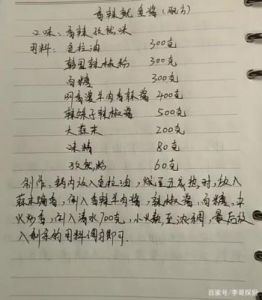 香辣鱿鱼酱（配方）
口味：香辣孜然味
用料：色拉油 300克
韩国辣椒粉 300克
白糖 300克
阿香婆羊肉香辣酱 400克
辣妹子辣椒酱 500克
大蒜末 200克
味精 80克
孜然粉 60克
制作：锅内放入色拉油，烧至五成热时，放入
蒜末煸香，倒入香辣羊肉酱，辣椒酱，白糖，中
火炒香，倒入清水700克，小火熬至浓稠，最后放
入剩余的用料调匀即可.
百家号/李哥探厨